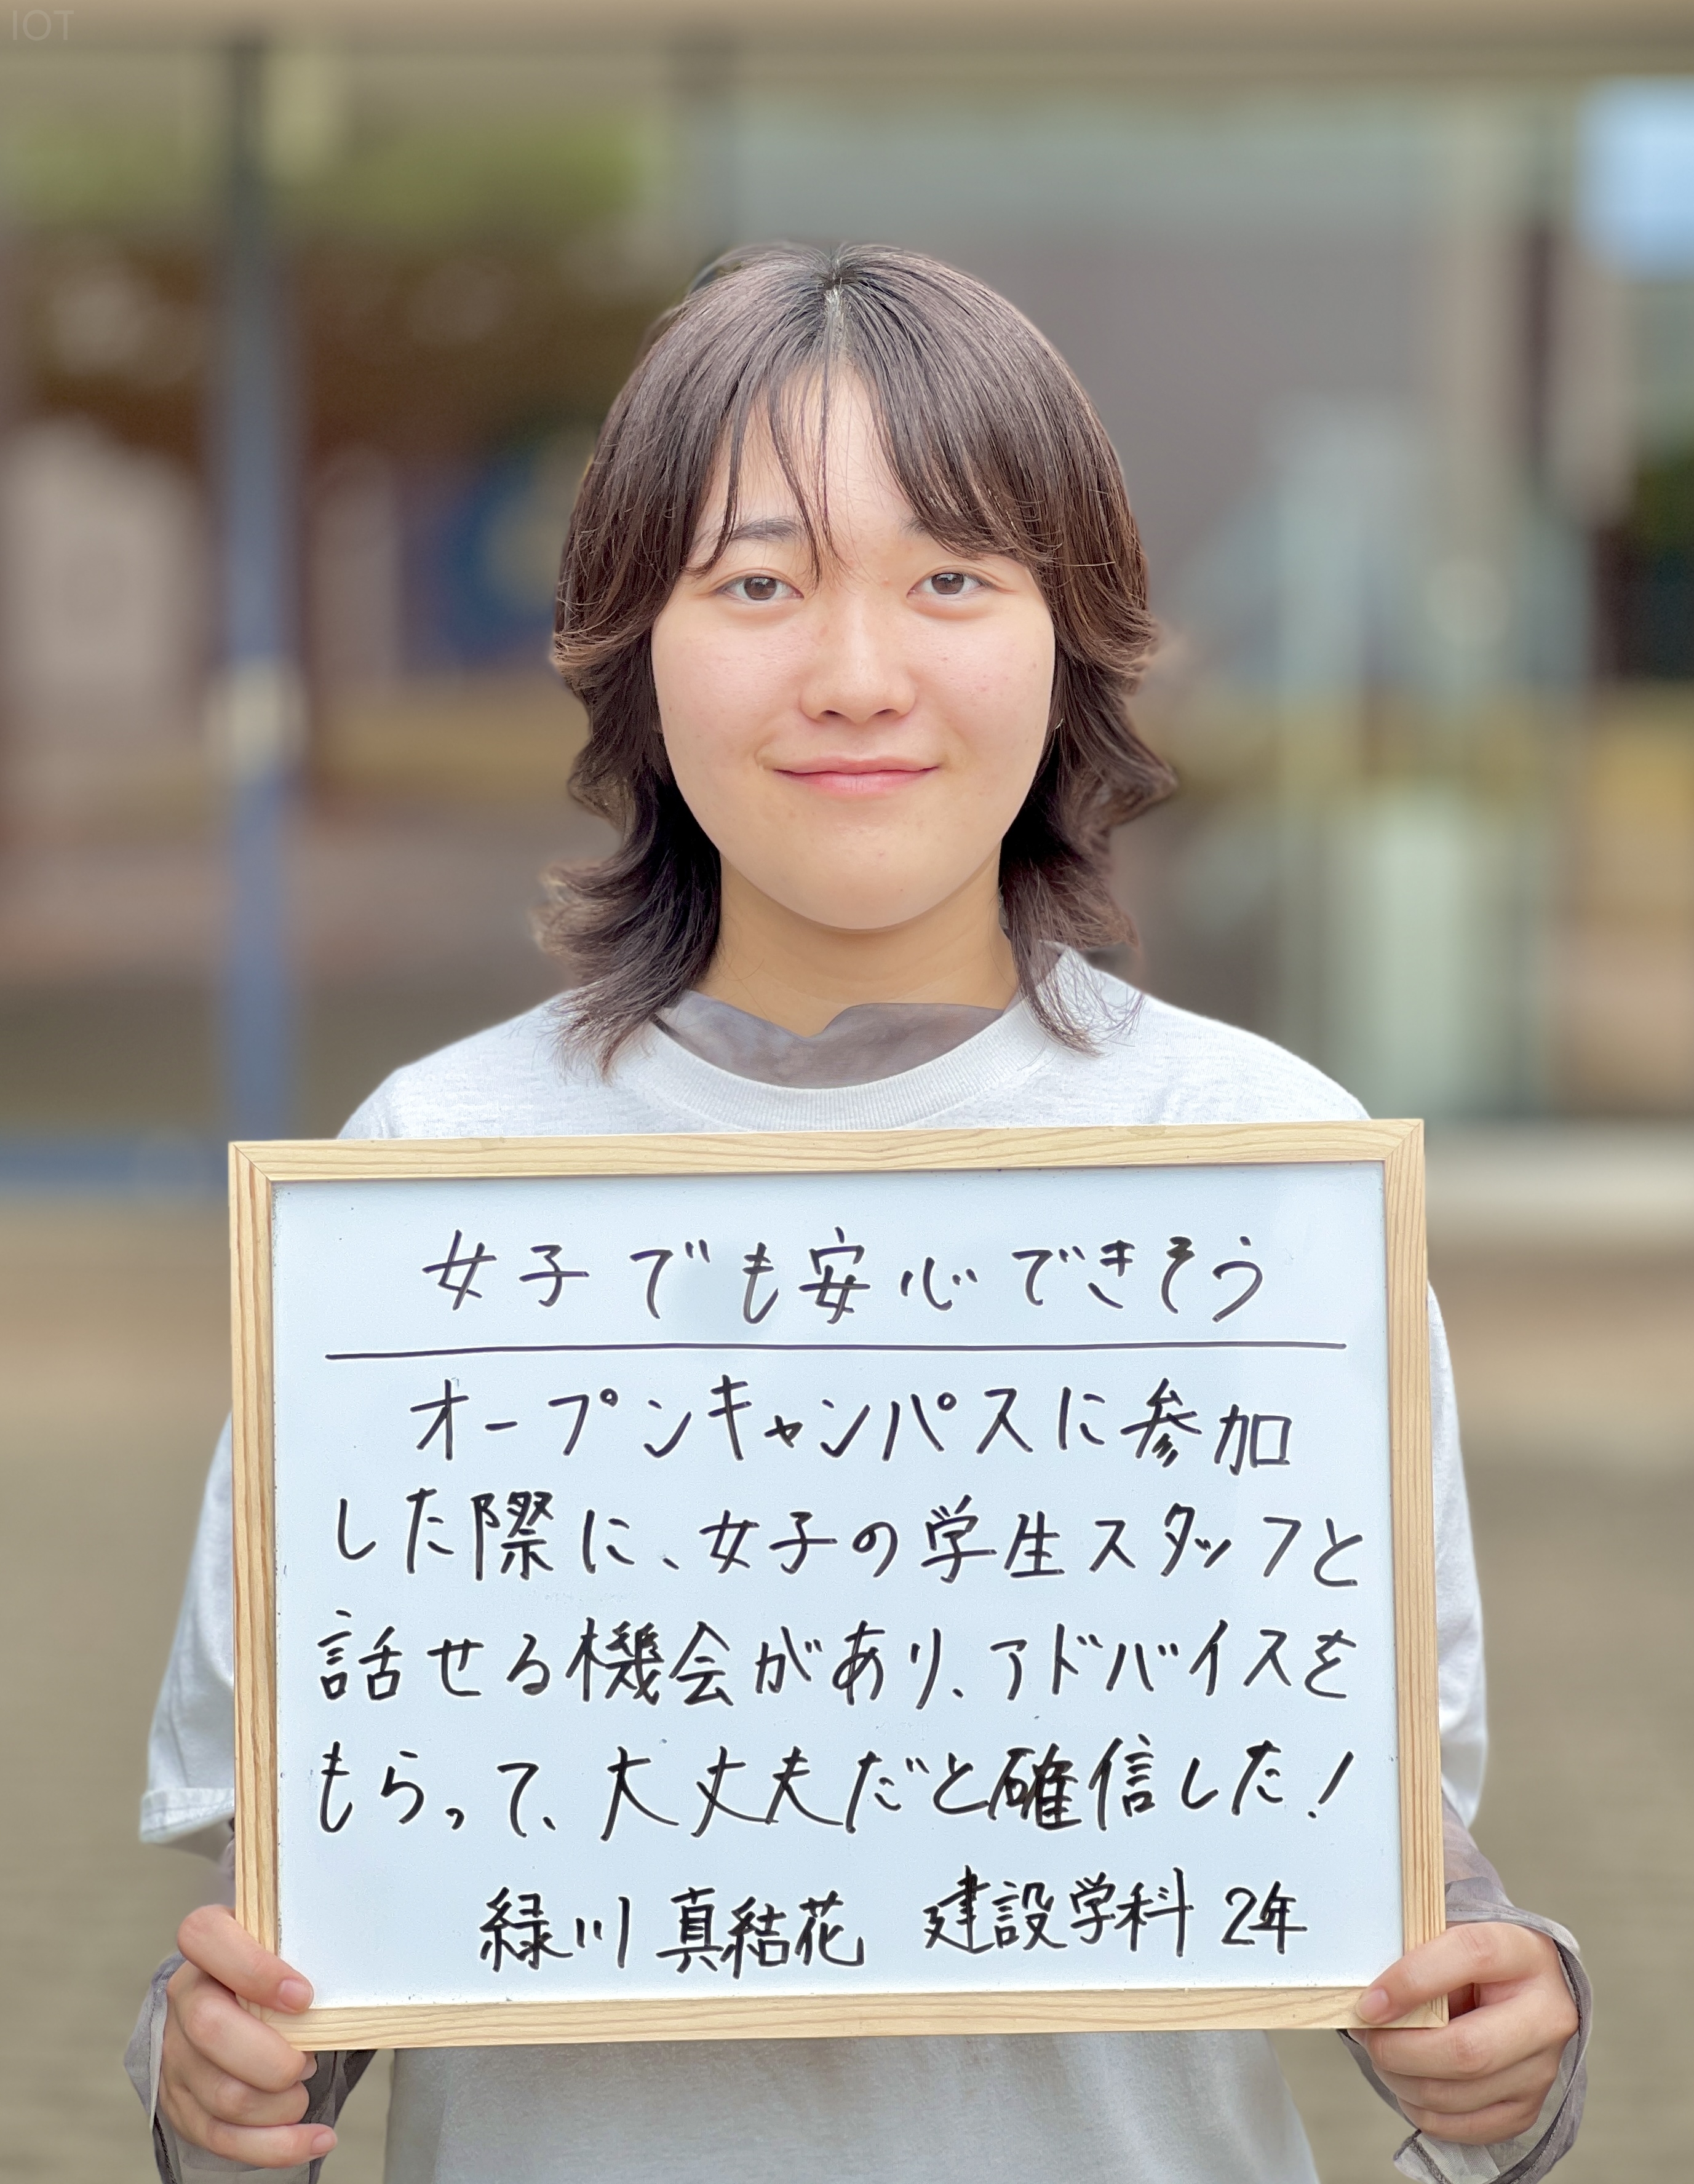 IOT
女子でも安心できそう
オープンキャンパスに参加
した際に、女子の学生スタッフと
話せる機会があり、アドバイスを
もらって、大丈夫だと確信した！
緑川 真結花 建設学科 2年